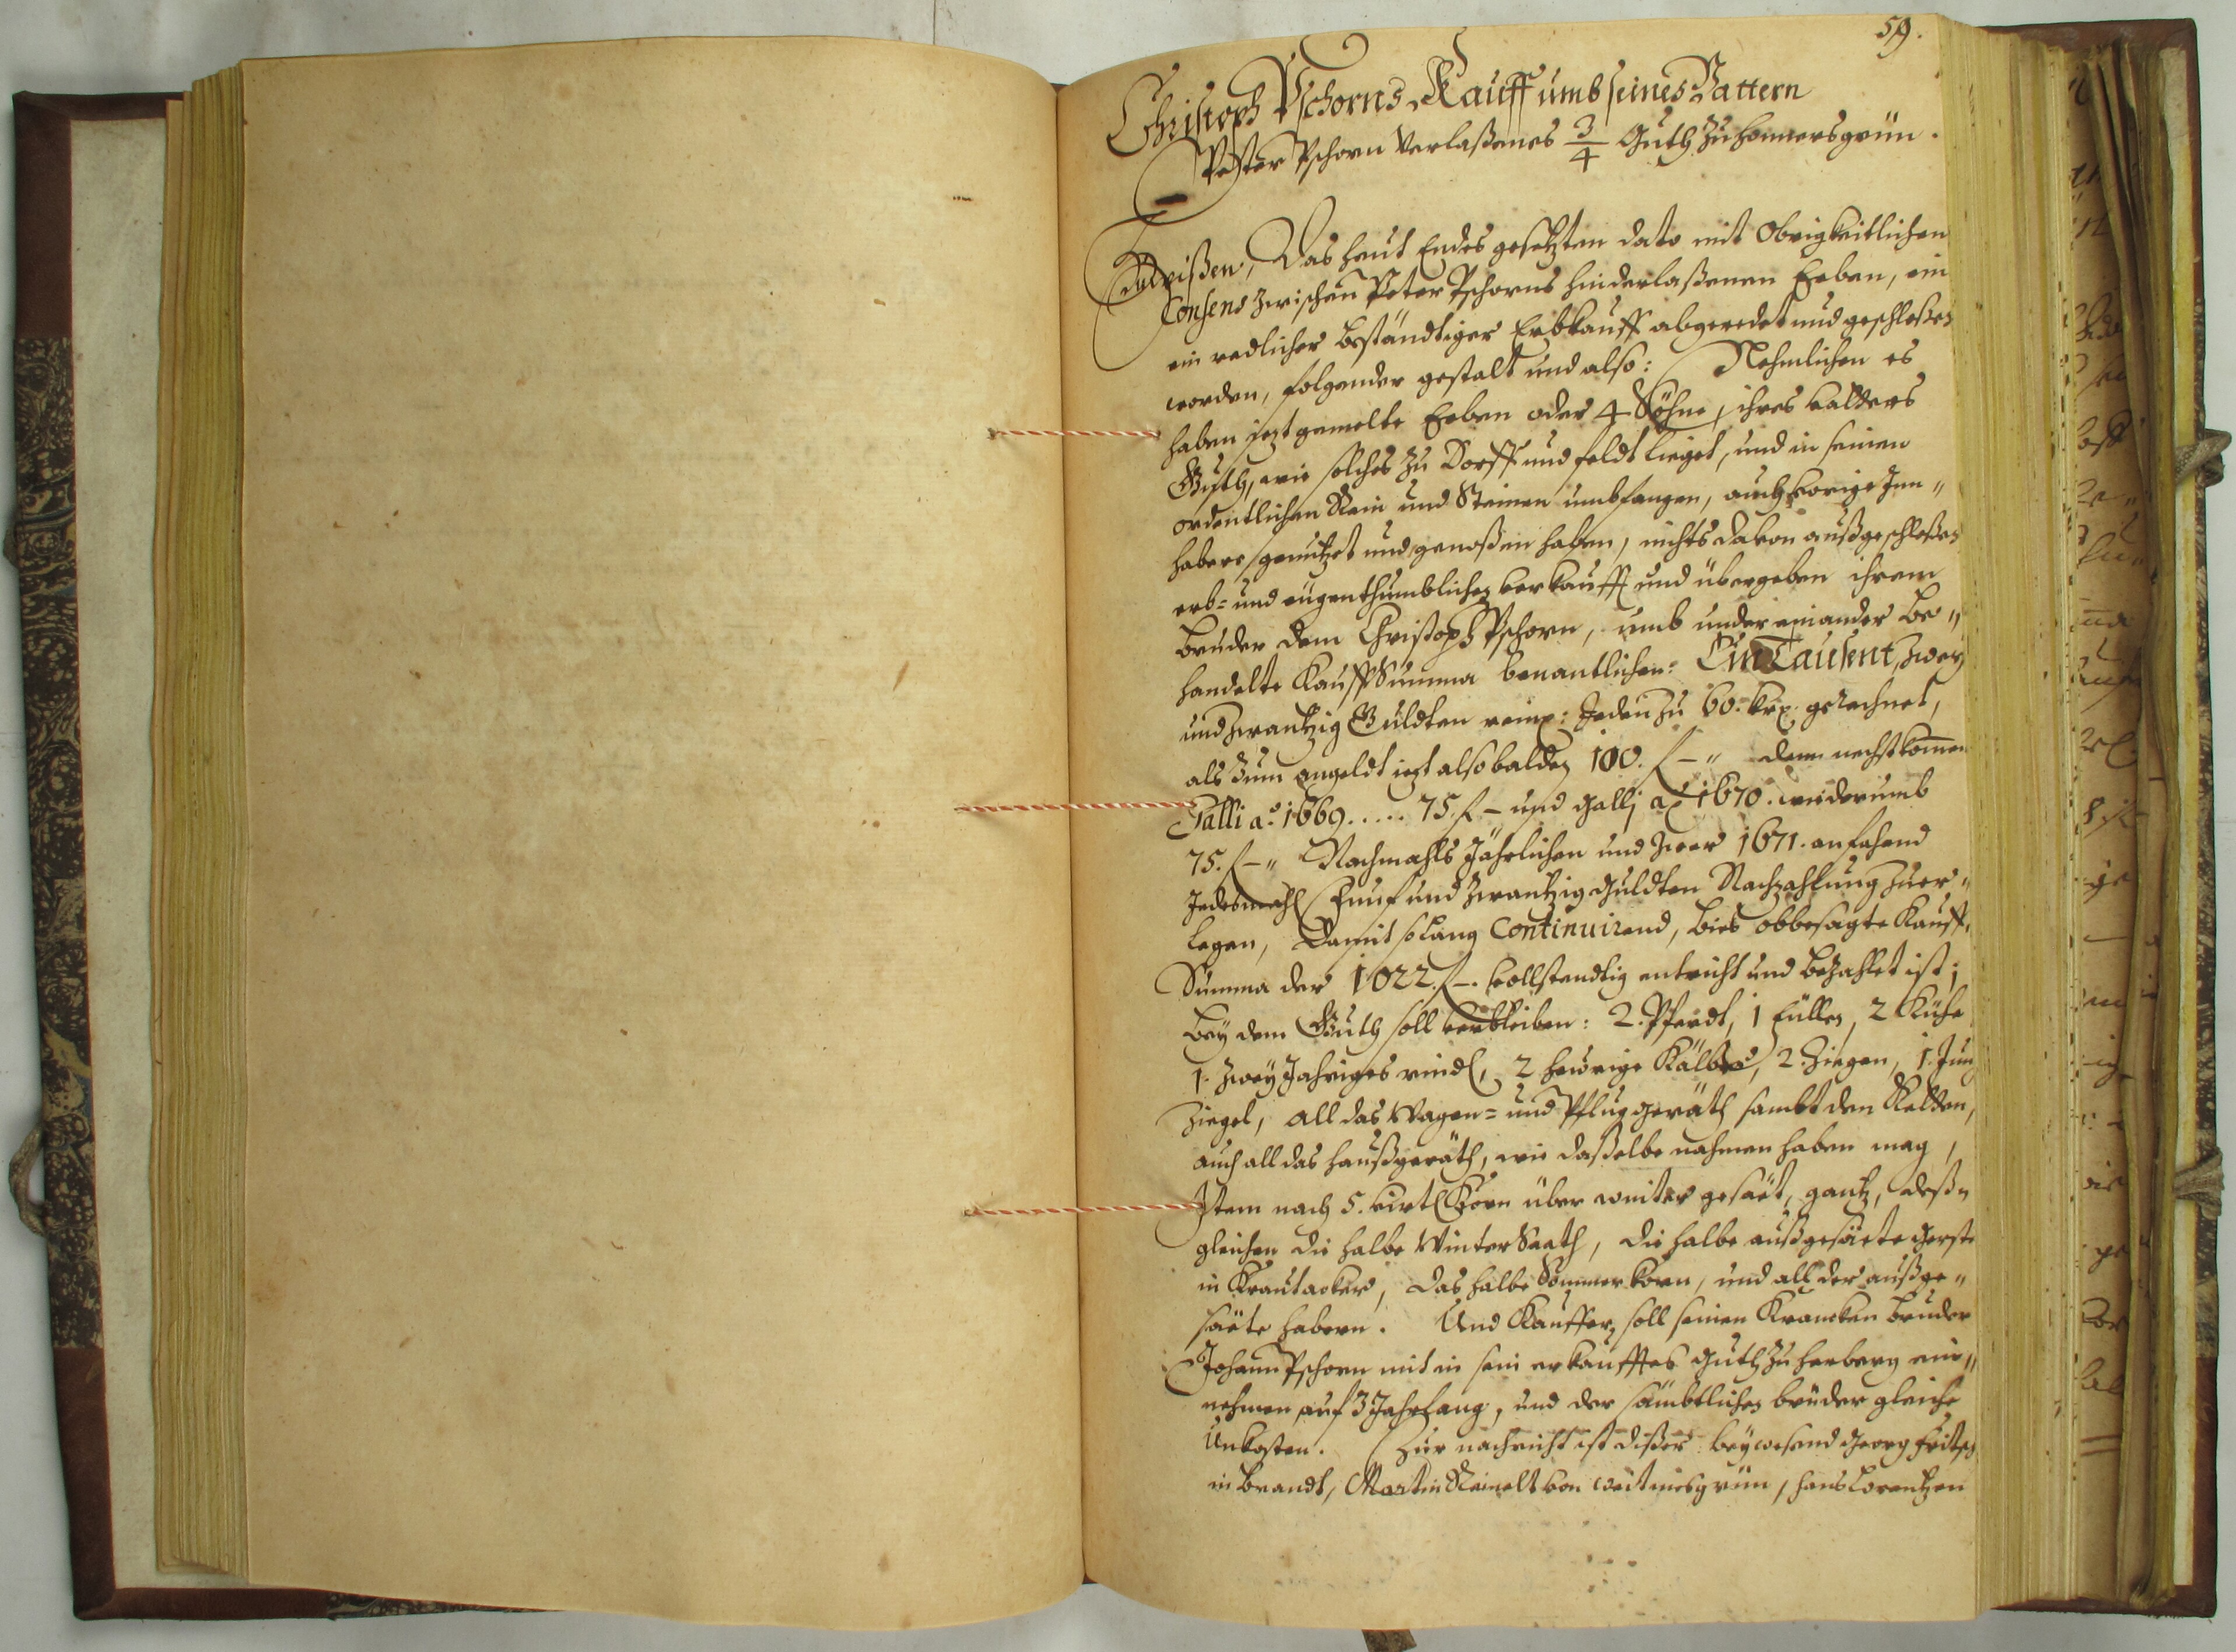 59.
Christoph Pschorns Kauff umb seines Vattern
Peter Pschorn Verlaßenes 3/4 Guth Zu Honnersgrün.
Zu Wißen, Das heut Endes gesetzten dato mit Obrigkeitlichen
Consens zwischen Peter Pschorns hinderlaßenen Erben, ein
ein redlicher beständtiger Erbkauff abgeredet und geschloßen
worden, folgender gestalt und also: Nehmlichen es
haben jeztgemelte Erben oder 4 Söhne, ihres Vatters
Guth, wie solches zu Dorff und feldt lieget, und in seinen
ordentlichen Rein und Steinen umbfangen, auch vorige Inn„
habere genutzet und genoßen haben, nichts davon außgeschloßen
erb= und eügenthumblichen verkaufft und übergeben ihrem
Bruder dem Christoph Pschorn, umb under einander be„
handelte KauffSumma benantlichen: Ein Tausent, zwey
und zwantzig Guldten reinß: Jeden zu 60. krz. gerechnet,
als Zum angeldt iezt alsobalden 100. f – „ dann nechstkommen
Galli a.o 1669..... 75. f – und Galli a.o 1670. widerumb
75. f – „ Nachmahls Jährlichen und zwar 1671. anfahend
Jedesmahl Funf und zwantzig Guldten Nachzahlung zuer„
legen, Damit solang Continuirend, bies obbesagte Kauff„
Summa der 1022. f –. vollstendtig entricht und bezahlet ist;
Bey dem Guth soll verbleiben: 2. Pferdt, 1 Füllen, 2 Kühe
1. Zwey Jähriges rindl, 2 heürige Kälber, 2. Ziegen, 1. Jung
Ziegel, all das Wagen= und Pfluggeräth sambt den Ketten,
auch all das haußgeräth, wie daßelbe nahmen haben mag,
Item nach 5. virtl Korn über winter gesäet, gantz, deßn
gleichen die halbe Winter Saath, die halbe außgesäete gerste
in Krautacker, das halbe Sommerkorn, und all der außge„
säete habern. Und Kauffer soll seinen Krancken bruder
Johann Pschorn mit in sein erkaufftes Guth zu herberg ein„
nehmen auf 3 Jahrlang, und der sämbtlichen brüder gleiche
Unkosten. Zur nachricht ist dißer beywesend Georg
in brandt, Martin Reinelt von Weitmesgrün, Hans Lorentzen